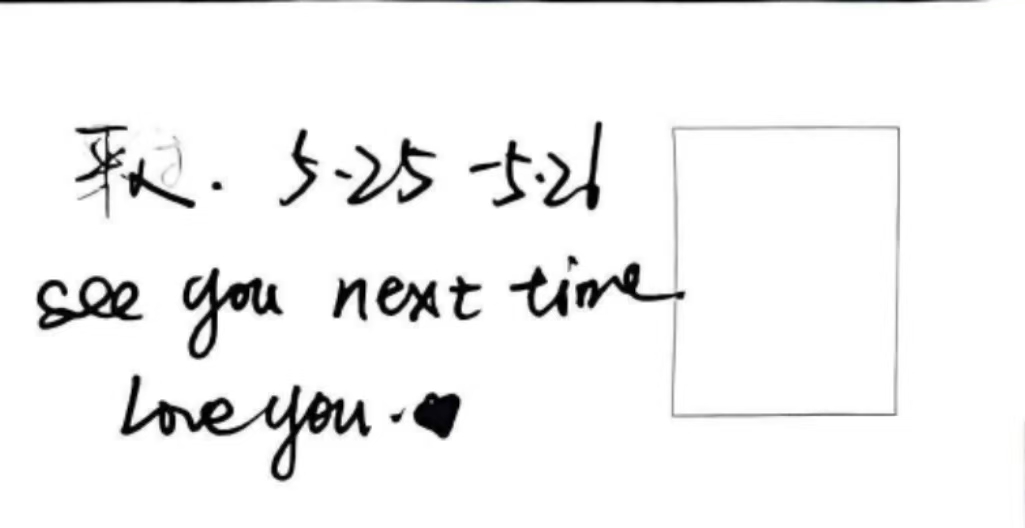 5.25-5.26
see you next time.
Love you.